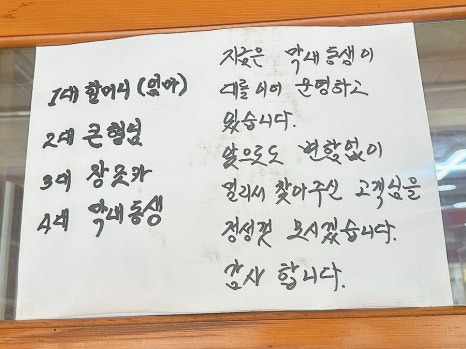 1대 할머니 (엄마)
2대 큰형님
3대 장조카
4대 막내동생
지금은 막내동생이
대를이어 운영하고
있습니다.
앞으로도 변함없이
멀리서 찾아주신 고객님을
정성껏 모시겠습니다.
감사 합니다.